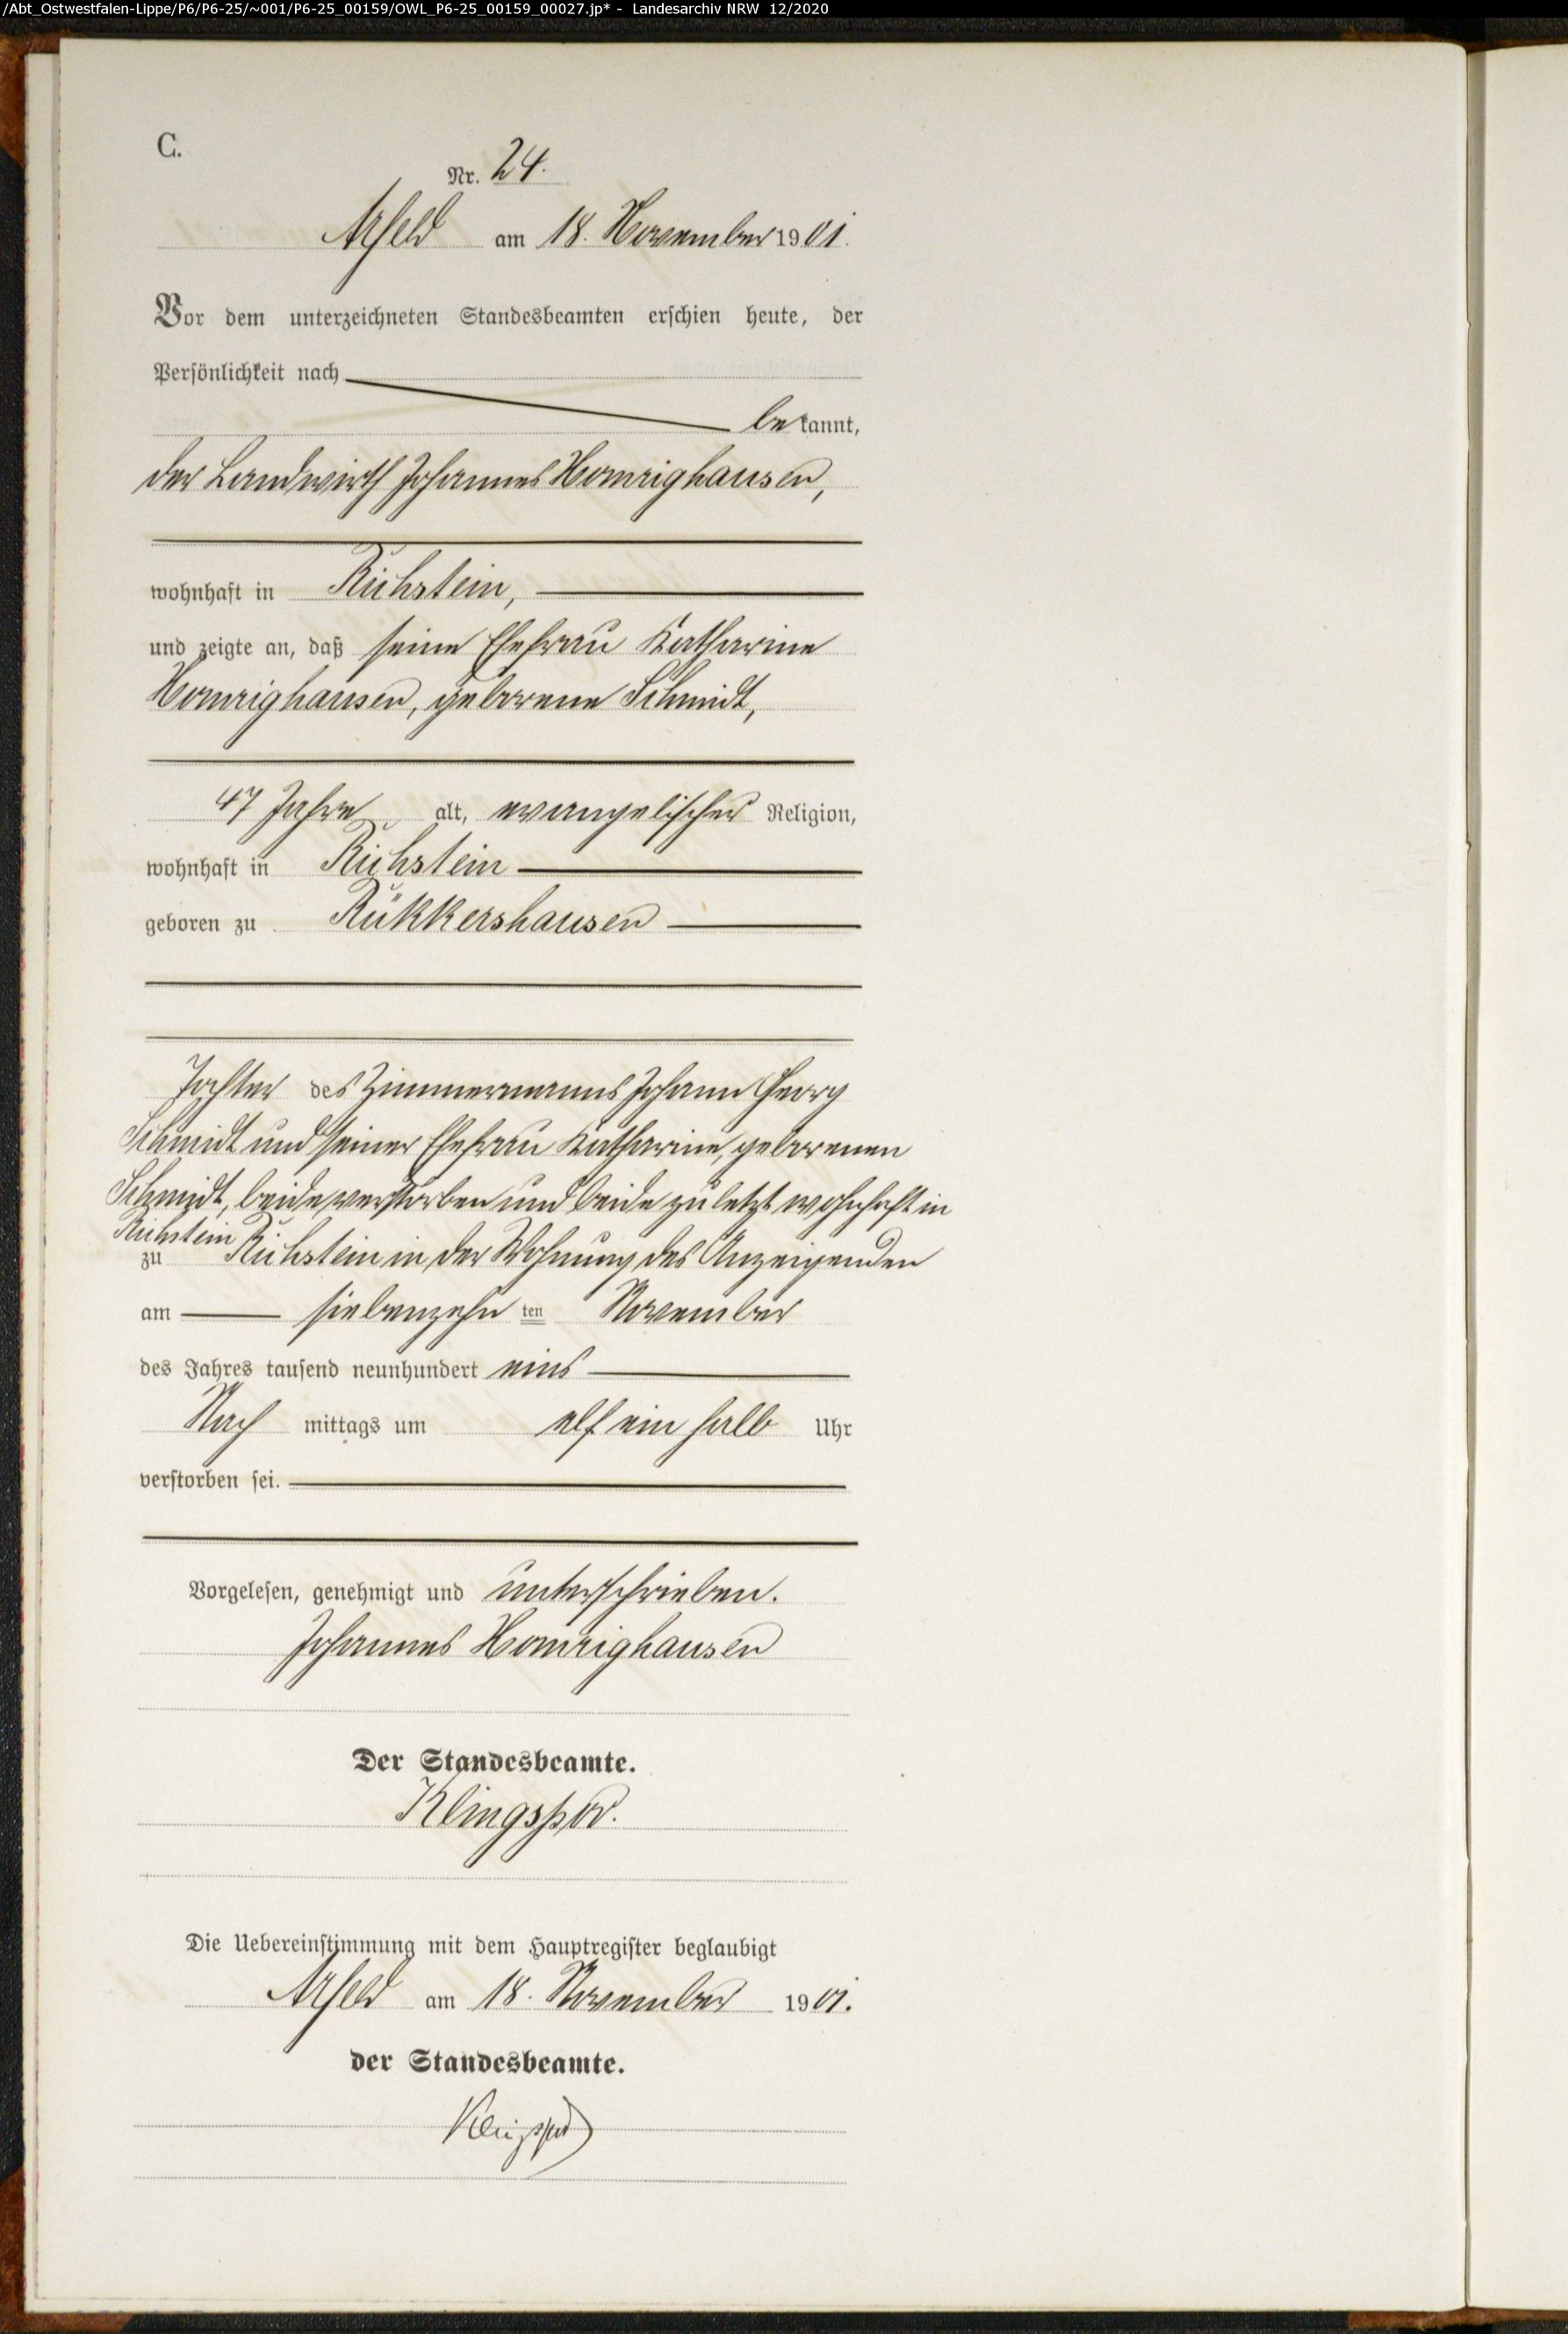 /Abt_Ostwestfalen-Lippe/P6/P6-25/~001/P6-25_00159/OWL_P6-25_00159_00027.jp* - Landesarchiv NRW 12/2020
C.
Nr. 24.
Arfeld am 18. November 1901.
Vor dem unterzeichneten Standesbeamten erschien heute, der
Persönlichkeit nach
bekannt,
der Landwirth Johannes Homrighausen,
wohnhaft in Richstein,
und zeigte an, daß seine Ehefrau Katharine
Homrighausen, geborene Schmidt,
47 Jahre alt, evangelischer Religion,
wohnhaft in Richstein
geboren zu Rükkershausen
Tochter des Zimmermanns Johann Georg
Schmidt und seiner Ehefrau Katharine, geborenen
Schmidt, beide verstorben und beide zuletzt wohnhaft in
Richstein
zu Richstein in der Wohnung des Anzeigenden
am siebenzehn ten November
des Jahres tausend neunhundert eins
Nach mittags um elf ein halb Uhr
verstorben sei.
Vorgelesen, genehmigt und unterschrieben.
Johannes Homrighausen
Der Standesbeamte.
Klingspor.
Die Uebereinstimmung mit dem Hauptregister beglaubigt
Arfeld am 18. November 1901.
der Standesbeamte.
Klingspor